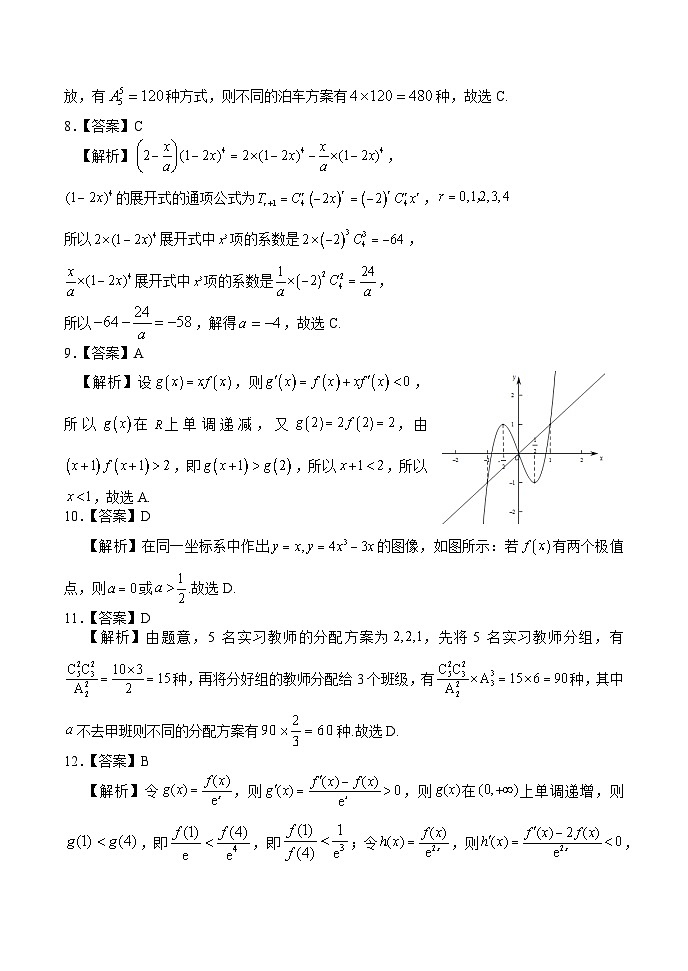 放，有 $A_5^5=120$ 种方式，则不同的泊车方案有 $4\times120=480$ 种，故选 C.
8.【答案】C
【解析】$\left(2-\frac{x}{a}\right)(1-2x)^4=2\times(1-2x)^4-\frac{x}{a}\times(1-2x)^4$，
$(1-2x)^4$ 的展开式的通项公式为 $T_{r+1}=C_4^r(-2x)^r=(-2)^rC_4^rx^r$，$r=0,1,2,3,4$
所以 $2\times(1-2x)^4$ 展开式中 $x^3$ 项的系数是 $2\times(-2)^3C_4^3=-64$，
$\frac{x}{a}\times(1-2x)^4$ 展开式中 $x^3$ 项的系数是 $\frac{1}{a}\times(-2)^2C_4^2=\frac{24}{a}$，
所以 $-64-\frac{24}{a}=-58$，解得 $a=-4$，故选 C.
9.【答案】A
【解析】设 $g(x)=xf(x)$，则 $g'(x)=f(x)+xf'(x)<0$，
所以 $g(x)$ 在 $R$ 上单调递减，又 $g(2)=2f(2)=2$，由
$(x+1)f(x+1)>2$，即 $g(x+1)>g(2)$，所以 $x+1<2$，所以
$x<1$，故选 A.
y
2
1
$\frac{1}{2}$
−2
−1
0
1
2
x
−1
−2
10.【答案】D
【解析】在同一坐标系中作出 $y=x,y=4x^3-3x$ 的图像，如图所示：若 $f(x)$ 有两个极值
点，则 $a=0$ 或 $a>\frac{1}{2}$.故选 D.
11.【答案】D
【解析】由题意，5 名实习教师的分配方案为 2,2,1，先将 5 名实习教师分组，有
$\frac{C_5^2C_3^2}{A_2^2}=\frac{10\times3}{2}=15$ 种，再将分好组的教师分配给 3 个班级，有 $\frac{C_5^2C_3^2}{A_2^2}\times A_3^3=15\times6=90$ 种，其中
$a$ 不去甲班则不同的分配方案有 $90\times\frac{2}{3}=60$ 种.故选 D.
12.【答案】B
【解析】令 $g(x)=\frac{f(x)}{e^x}$，则 $g'(x)=\frac{f'(x)-f(x)}{e^x}>0$，则 $g(x)$ 在 $(0,+\infty)$ 上单调递增，则
$g(1)<g(4)$，即 $\frac{f(1)}{e}<\frac{f(4)}{e^4}$，即 $\frac{f(1)}{f(4)}<\frac{1}{e^3}$；令 $h(x)=\frac{f(x)}{e^{2x}}$，则 $h'(x)=\frac{f'(x)-2f(x)}{e^{2x}}<0$，